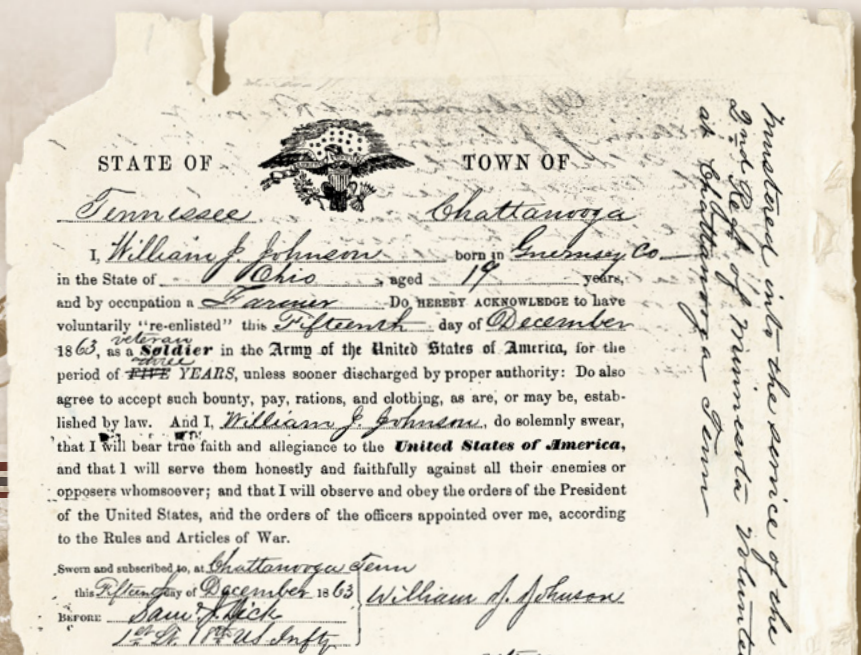 STATE OF TOWN OF
Tennessee Chattanooga
I, William J. Johnson born in Guernsey Co
in the State of Ohio, aged 19 years,
and by occupation a Farmer Do HEREBY ACKNOWLEDGE to have
voluntarily "re-enlisted" this Fifteenth day of December
veteran
1863, as a Soldier in the Army of the United States of America, for the
three
period of FIVE YEARS, unless sooner discharged by proper authority: Do also
agree to accept such bounty, pay, rations, and clothing, as are, or may be, estab-
lished by law. And I, William J. Johnson, do solemnly swear,
that I will bear true faith and allegiance to the United States of America,
and that I will serve them honestly and faithfully against all their enemies or
opposers whomsoever; and that I will observe and obey the orders of the President
of the United States, and the orders of the officers appointed over me, according
to the Rules and Articles of War.
Sworn and subscribed to, at Chattanooga Tenn
this Fifteenth day of December 1863
William J. Johnson
BEFORE Saml J. Dick
1st Lt. 18th US Infty
Mustered into the service of the
2nd Regt of Minnesota
at Chattanooga Tenn